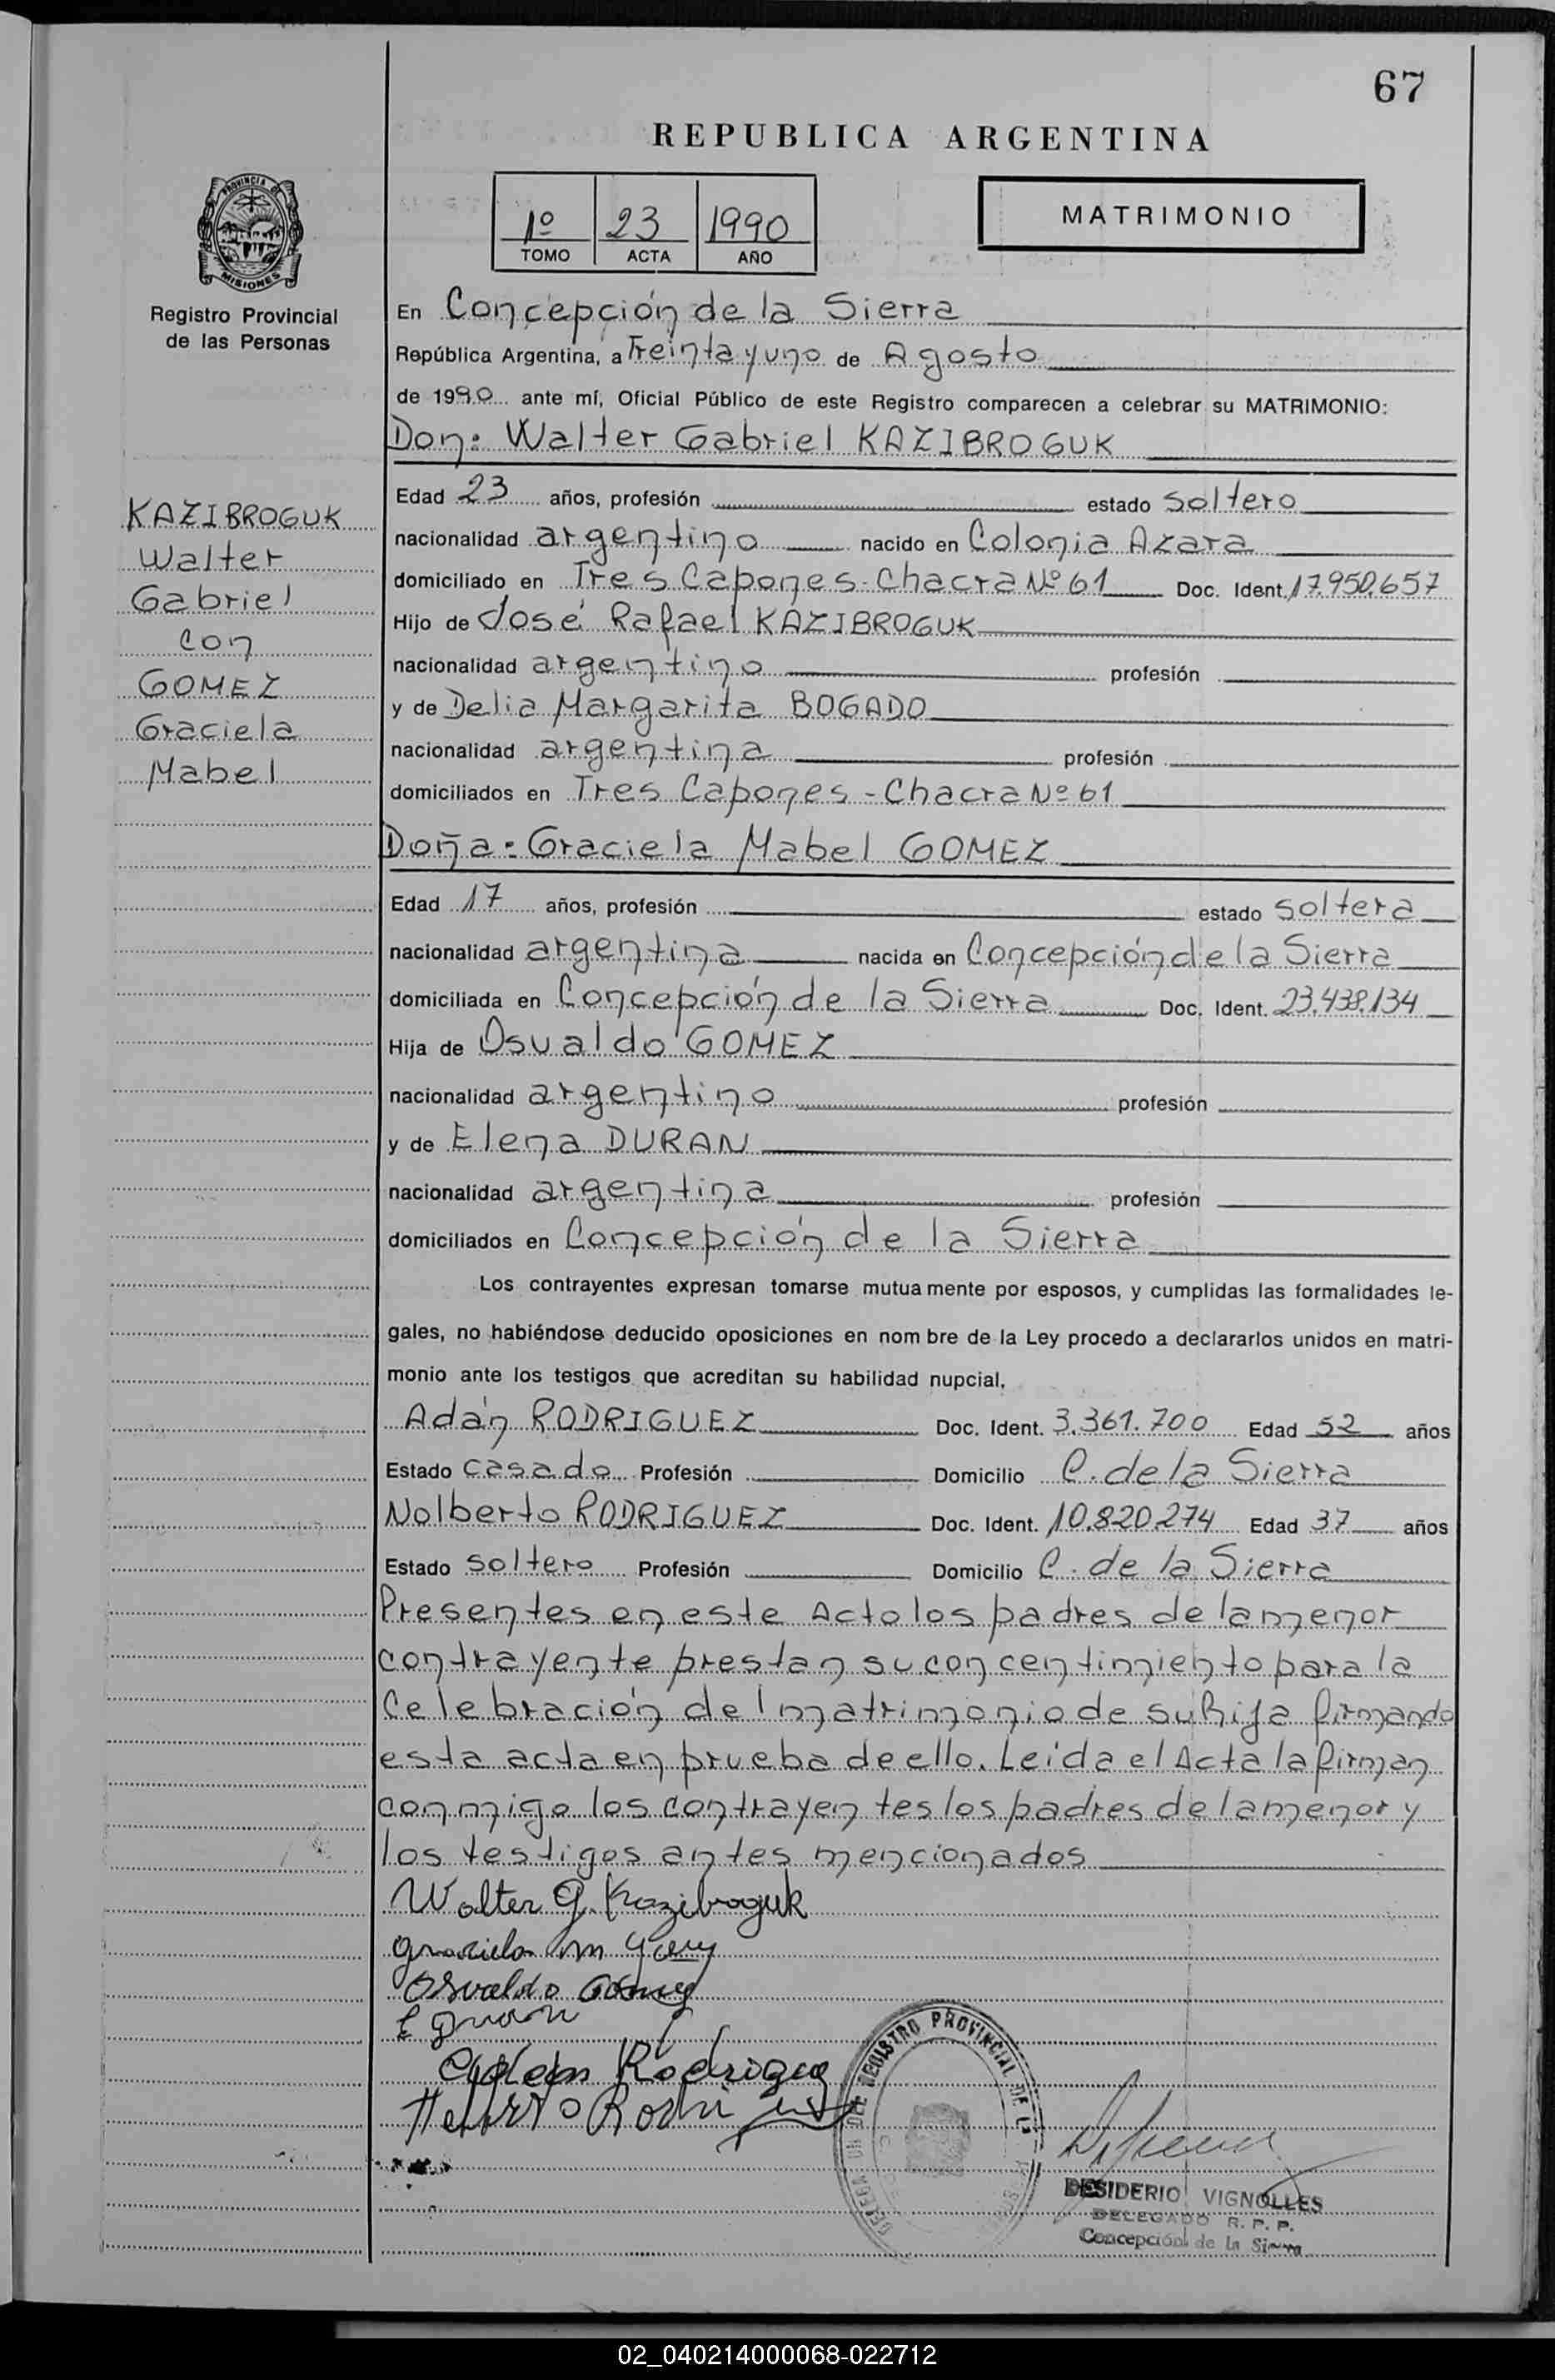 67
REPUBLICA ARGENTINA
PROVINCIA DE
MISIONES
Registro Provincial
de las Personas
1º 23 1990
TOMO ACTA AÑO
MATRIMONIO
En Concepción de la Sierra
República Argentina, a Treinta y uno de Agosto
de 1990 ante mí, Oficial Público de este Registro comparecen a celebrar su MATRIMONIO:
Don: Walter Gabriel KAZIBROGUK
KAZIBROGUK
Walter
Gabriel
con
GOMEZ
Graciela
Mabel
Edad 23 años, profesión estado soltero
nacionalidad argentino nacido en Colonia Azara
domiciliado en Tres Capones-Chacra Nº 61 Doc. Ident. 17.950.657
Hijo de José Rafael KAZIBROGUK
nacionalidad argentino profesión
y de Delia Margarita BOGADO
nacionalidad argentina profesión
domiciliados en Tres Capones - Chacra Nº 61
Doña: Graciela Mabel GOMEZ
Edad 17 años, profesión estado soltera
nacionalidad argentina nacida en Concepción de la Sierra
domiciliada en Concepción de la Sierra Doc. Ident. 23.438.134
Hija de Osvaldo GOMEZ
nacionalidad argentino profesión
y de Elena DURAN
nacionalidad argentina profesión
domiciliados en Concepción de la Sierra
Los contrayentes expresan tomarse mutuamente por esposos, y cumplidas las formalidades le-
gales, no habiéndose deducido oposiciones en nombre de la Ley procedo a declararlos unidos en matri-
monio ante los testigos que acreditan su habilidad nupcial.
Adán RODRIGUEZ Doc. Ident. 3.361.700 Edad 52 años
Estado casado Profesión Domicilio C. de la Sierra
Nolberto RODRIGUEZ Doc. Ident. 10.820.274 Edad 37 años
Estado soltero Profesión Domicilio C. de la Sierra
Presentes en este Acto los padres de la menor
contrayente prestan su concentimiento para la
Celebración del matrimonio de su hija firmando
esta acta en prueba de ello. Leída el Acta la firman
conmigo los contrayentes los padres de la menor y
los testigos antes mencionados
Walter G. Kazibroguk
Graciela M
Osvaldo Gomez
E Duran
Adan Rodriguez
REGISTRO PROVINCIAL DE L
DESIDERIO VIGNOLLES
DELEGADO R. P. P.
Concepción de la Sierra
02_040214000068-022712